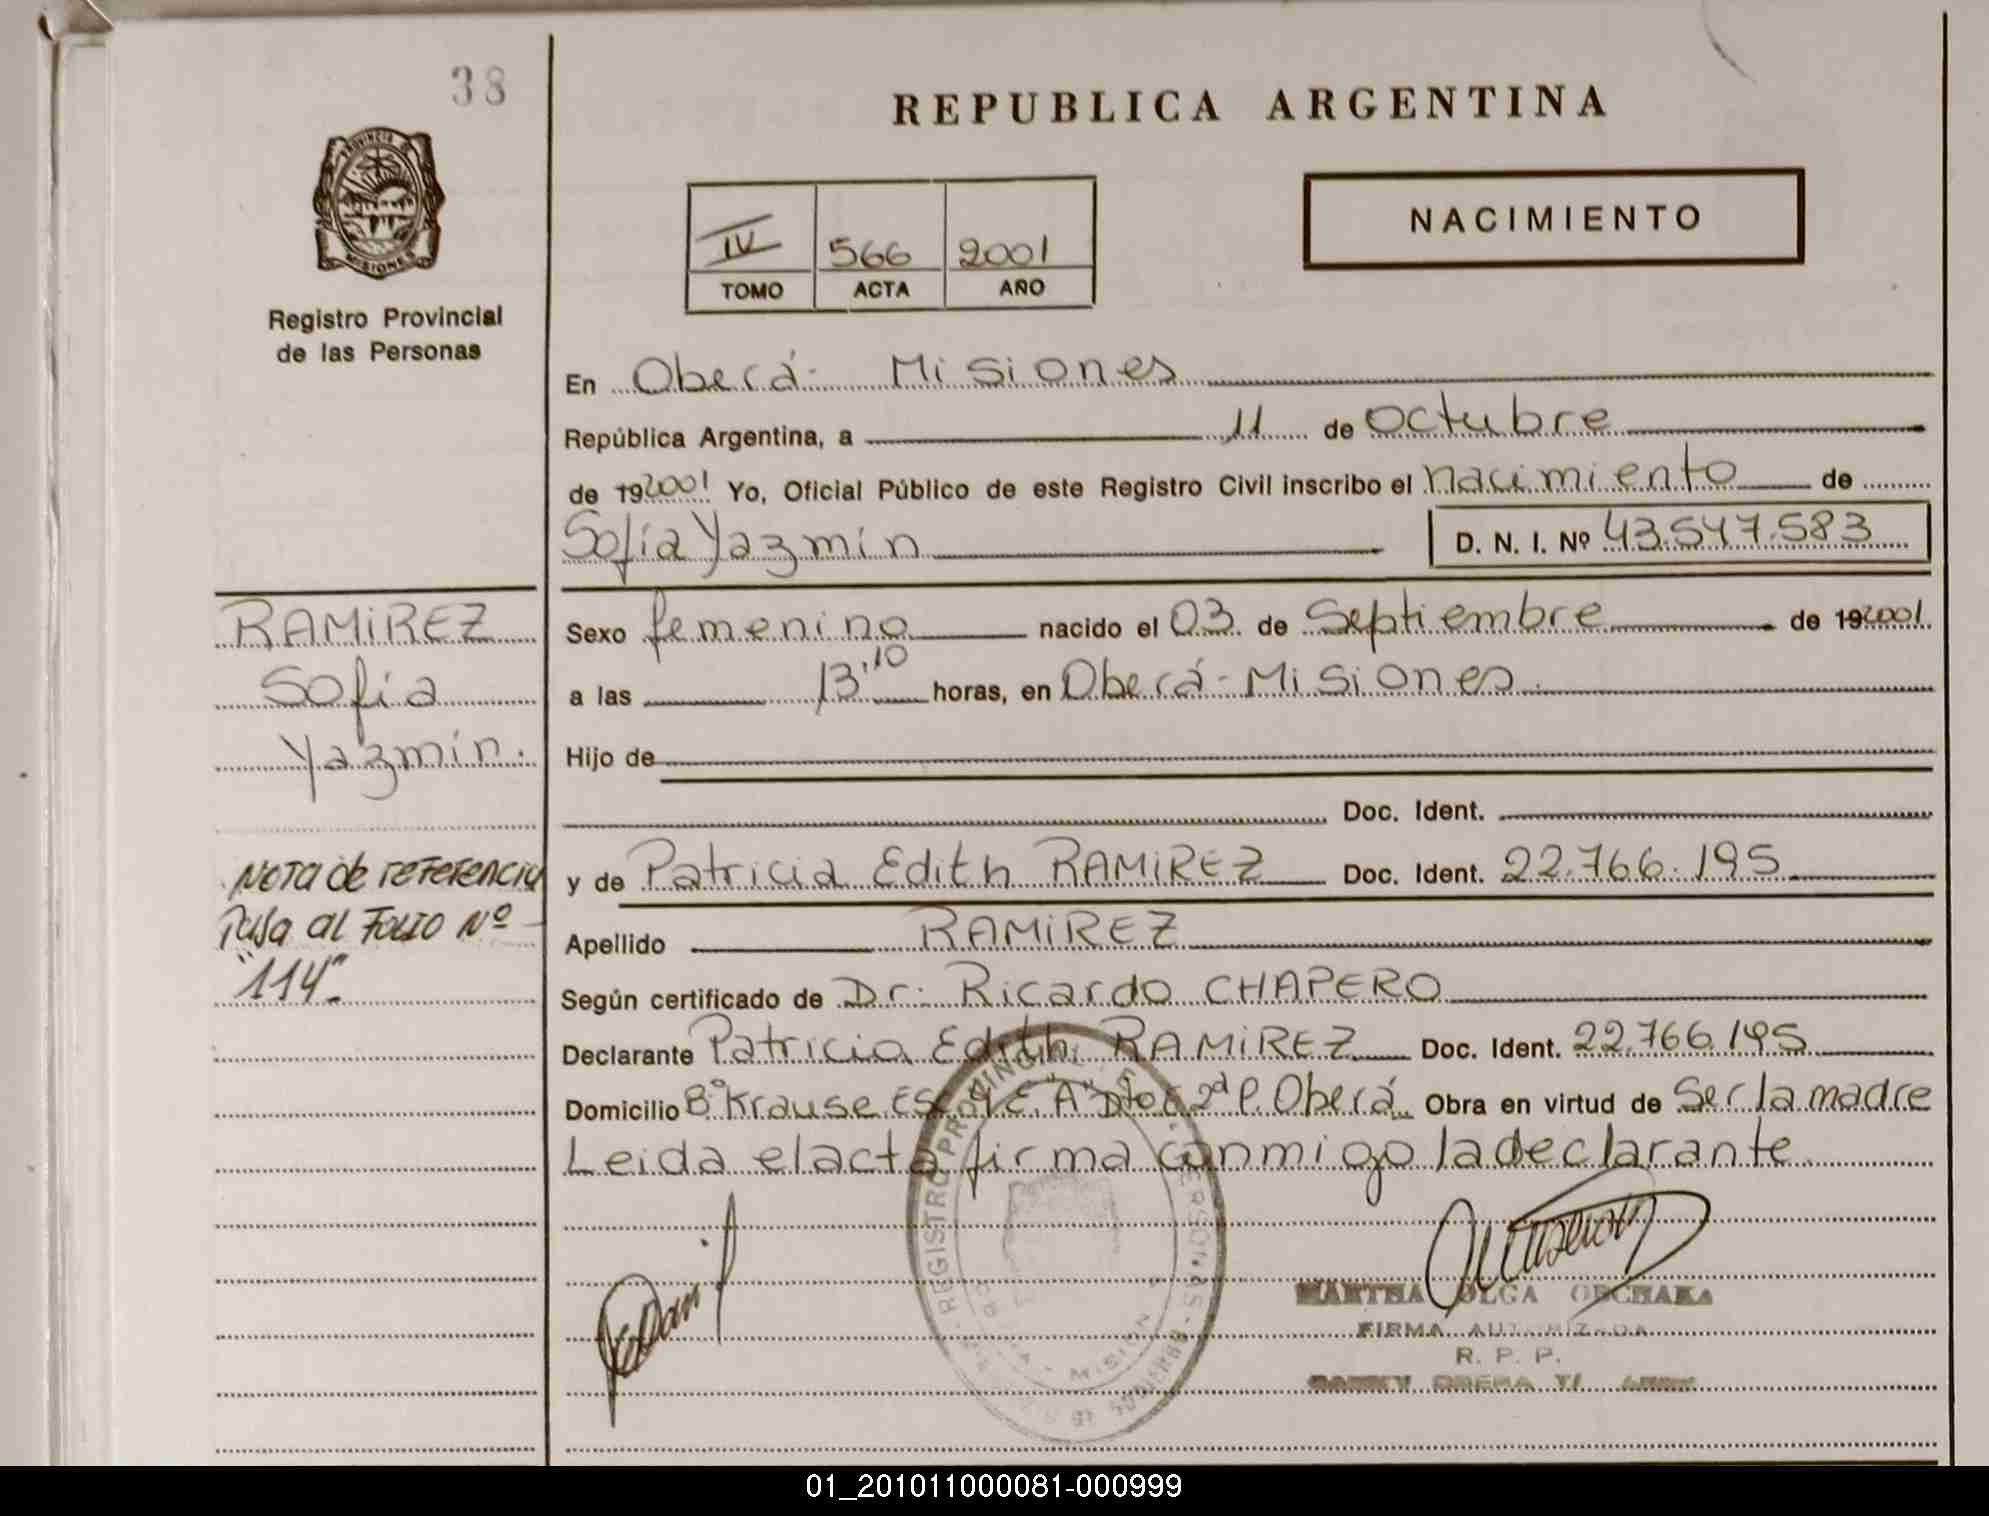 38
REPUBLICA ARGENTINA
PROVINCIA DE
MISIONES
Registro Provincial
de las Personas
NACIMIENTO
IV 566 2001
TOMO ACTA AÑO
En Oberá- Misiones
República Argentina, a 11 de Octubre
de 192001 Yo, Oficial Público de este Registro Civil inscribo el nacimiento de
Sofía Yazmín D. N. I. Nº 43.547.583
RAMIREZ
Sofía
Yazmín.
Sexo femenino nacido el 03 de Septiembre de 192001
a las 13'10 horas, en Oberá-Misiones.
Hijo de
Doc. Ident.
y de Patricia Edith RAMIREZ Doc. Ident. 22.766.195
Nota de referencia
Pasa al Folio Nº
"114".
Apellido RAMIREZ
Según certificado de Dr. Ricardo CHAPERO
Declarante Patricia Edith RAMIREZ Doc. Ident. 22.766.195
Domicilio Bº Krause Oberá Obra en virtud de Ser la madre
Leida el acta firma conmigo la declarante.
REGISTRO PROVINCIAL
MISIONES
MARTHA OLGA
FIRMA AUTORIZADA
R. P. P.
01_201011000081-000999